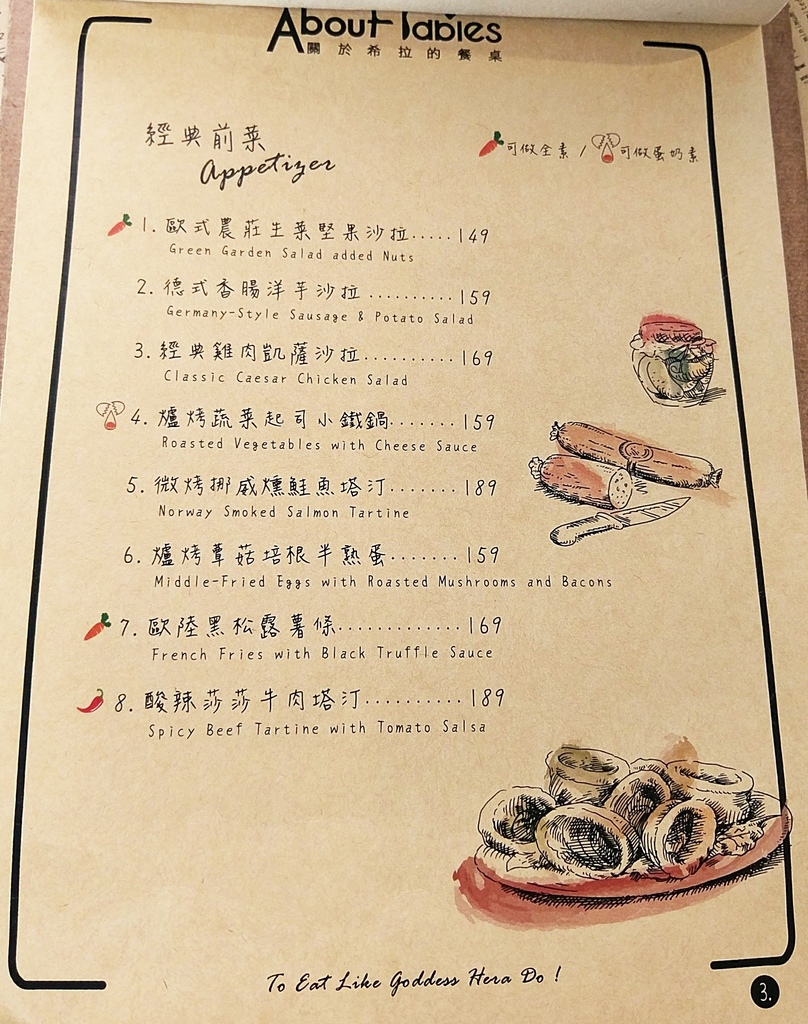 About Tables
關於希拉的餐桌
經典前菜
Appetizer
可做全素 / 可做蛋奶素
1. 歐式農莊生菜堅果沙拉.....149
Green Garden Salad added Nuts
2. 德式香腸洋芋沙拉..........159
Germany-Style Sausage & Potato Salad
3. 經典雞肉凱薩沙拉..........169
Classic Caesar Chicken Salad
4. 爐烤蔬菜起司小鐵鍋.......159
Roasted Vegetables with Cheese Sauce
5. 微烤挪威燻鮭魚塔汀.......189
Norway Smoked Salmon Tartine
6. 爐烤蕈菇培根半熟蛋.......159
Middle-Fried Eggs with Roasted Mushrooms and Bacons
7. 歐陸黑松露薯條.............169
French Fries with Black Truffle Sauce
8. 酸辣莎莎牛肉塔汀..........189
Spicy Beef Tartine with Tomato Salsa
To Eat Like Goddess Hera Do !
3.